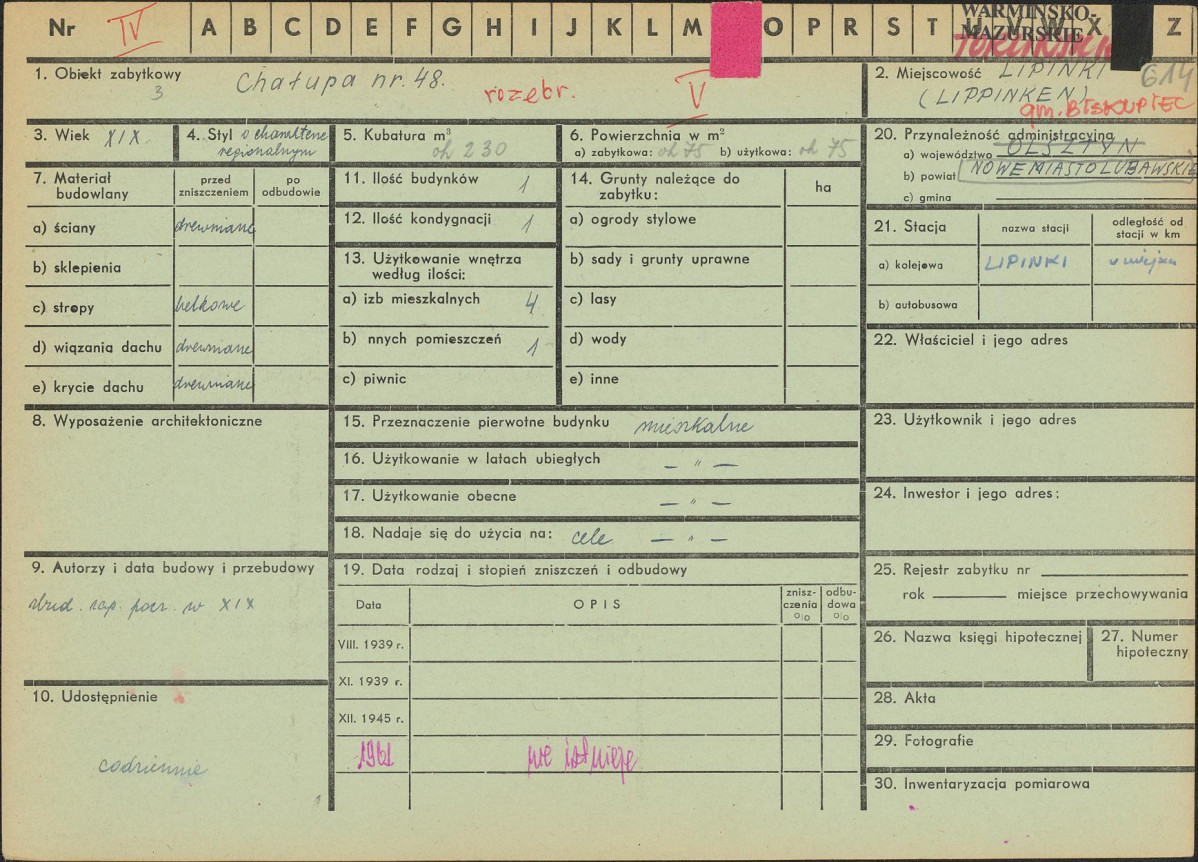 Nr IV A B C D E F G H I J K L M O P R S T U V W X Z
WARMIŃSKO-
MAZURSKIE
1. Obiekt zabytkowy
Chałupa nr. 48.
3
rozebr.
V
2. Miejscowość LIPINKI 614
(LIPPINKEN)
gm. BISKUPIEC
3. Wiek XIX.
4. Styl o charakterze
regionalnym
5. Kubatura m³
ok 230
6. Powierzchnia w m²
a) zabytkowa: ok 75 b) użytkowa: ok 75
20. Przynależność administracyjna
a) województwo OLSZTYN
b) powiat NOWE MIASTO LUBAWSKIE
c) gmina
7. Materiał
budowlany
przed
zniszczeniem
po
odbudowie
a) ściany drewniane
b) sklepienia
c) stropy belkowe
d) wiązania dachu drewniane
e) krycie dachu drewniane
11. Ilość budynków 1
12. Ilość kondygnacji 1
13. Użytkowanie wnętrza
według ilości:
a) izb mieszkalnych 4
b) nnych pomieszczeń 1
c) piwnic
14. Grunty należące do
zabytku:
ha
a) ogrody stylowe
b) sady i grunty uprawne
c) lasy
d) wody
e) inne
21. Stacja
nazwa stacji
odległość od
stacji w km
a) kolejowa LIPINKI w miejscu
b) autobusowa
22. Właściciel i jego adres
8. Wyposażenie architektoniczne
15. Przeznaczenie pierwotne budynku mieszkalne
16. Użytkowanie w latach ubiegłych — " —
17. Użytkowanie obecne — " —
18. Nadaje się do użycia na: cele — " —
23. Użytkownik i jego adres
24. Inwestor i jego adres:
9. Autorzy i data budowy i przebudowy
zbud. zap. pocz. w XIX
19. Data rodzaj i stopień zniszczeń i odbudowy
Data
OPIS
znisz-
czenia
%
odbu-
dowa
%
VIII. 1939 r.
XI. 1939 r.
XII. 1945 r.
1961 nie istnieje
25. Rejestr zabytku nr
rok miejsce przechowywania
26. Nazwa księgi hipotecznej
27. Numer
hipoteczny
10. Udostępnienie
codziennie
28. Akta
29. Fotografie
30. Inwentaryzacja pomiarowa